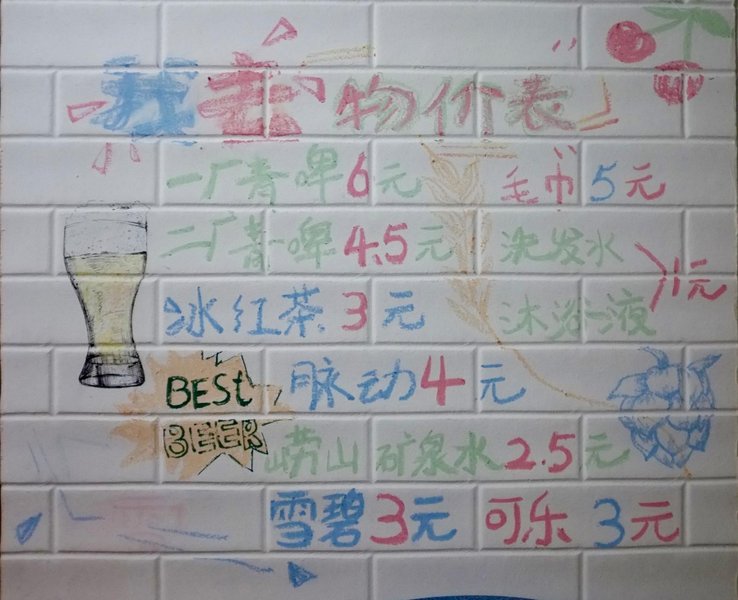 物价表
一厂青啤6元 毛巾5元
二厂青啤4.5元 洗发水
1元
冰红茶3元 沐浴液
BESt 脉动4元
BEER 崂山矿泉水2.5元
雪碧3元 可乐3元